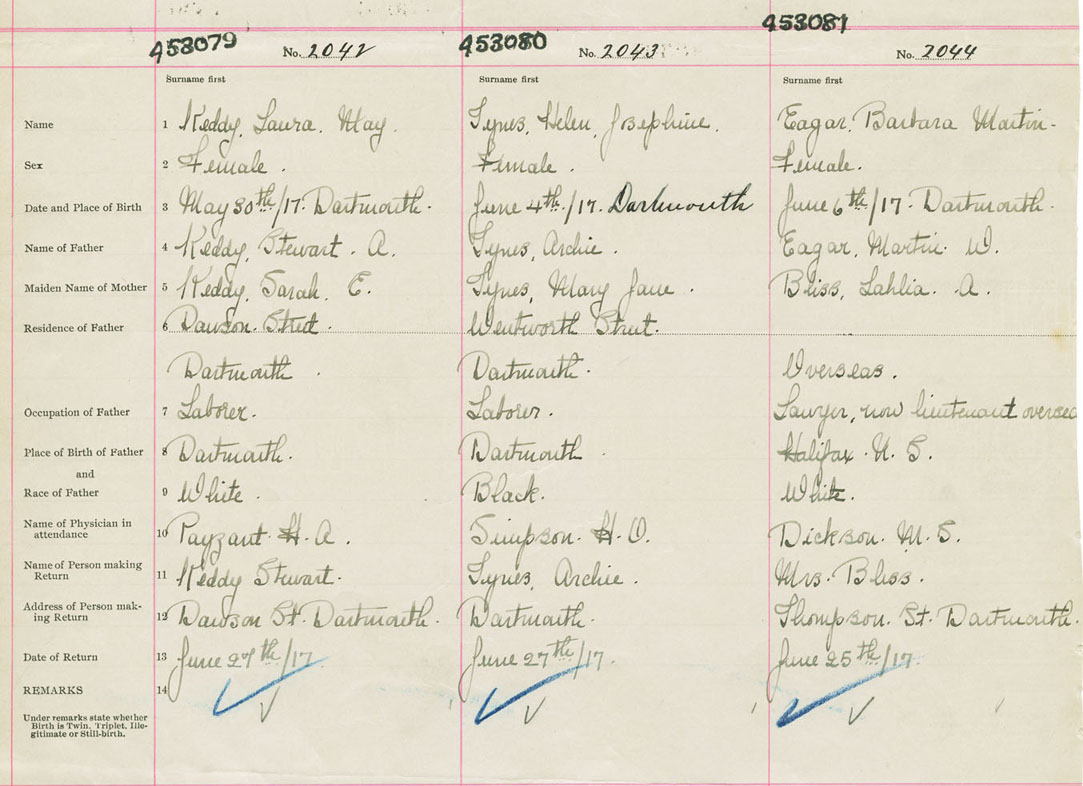 453079 453080 453081
No. 2042 No. 2043 No. 2044
Surname first Surname first Surname first
Name 1 Keddy, Laura. May. Tynes, Helen, Josephine. Eagar, Barbara Martin.
Sex 2 Female. Female. Female.
Date and Place of Birth 3 May 30th/17. Dartmouth. June 4th./17. Dartmouth June 6th/17. Dartmouth.
Name of Father 4 Keddy, Stewart. A. Tynes, Archie. Eagar, Martin. W.
Maiden Name of Mother 5 Keddy, Sarah. E. Tynes, Mary Jane. Bliss, Lahlia. A.
Residence of Father 6 Dawson. Street. Wentworth Street.
Dartmouth. Dartmouth. Overseas.
Occupation of Father 7 Laborer. Laborer. Lawyer, now lieutenant overseas
Place of Birth of Father 8 Dartmouth. Dartmouth. Halifax. N. S.
and
Race of Father 9 White. Black. White.
Name of Physician in
attendance 10 Payzant. H. A. Simpson. H. O. Dickson. M. S.
Name of Person making
Return 11 Keddy Stewart. Tynes, Archie. Mrs. Bliss.
Address of Person mak-
ing Return 12 Dawson St. Dartmouth. Dartmouth. Thompson. St. Dartmouth.
Date of Return 13 June 27th/17. June 27th/17. June 25th/17.
REMARKS 14
Under remarks state whether
Birth is Twin, Triplet, Ille-
gitimate or Still-birth.